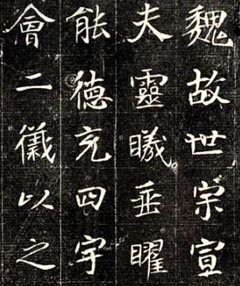 魏故世宗宣
夫靈曦垂曜
能德充四宇
會二儀以之